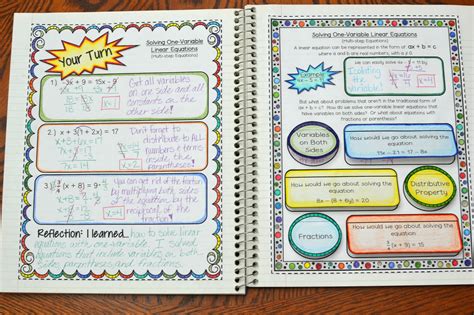 Solving One-Variable
Linear Equations
(Multi-step Equations)
Your Turn
1.) 3x + 9 = 15x - 9
Get all variables
on one side and all
constants on the
other side!
2.) x + 3(1 + 2x) = 17
Don't forget to
distribute to ALL
terms inside
the parentheses!
x=2
(x + 8) = 9
You can get rid of the fraction
by multiplying both sides
of the equation by
the reciprocal of the
fraction!
x=4
Reflection: I learned... how to solve linear
equations with one-variable. I solved
equations that include variables on both
sides, parentheses and fractions.
Solving One-Variable Linear Equations
(Multi-step Equations)
A linear equation can be represented in the form of ax + b = c,
where a and b are real numbers, with a ≠ 0.
Example
We can easily solve
Isolating
the
Variable!
But what about problems that aren't in the traditional form of
ax + b = c? How do we solve one-variable linear equations that
have variables on both sides? Or what about equations with
fractions or parentheses?
Variables
on Both
Sides
How would we go about solving the
equation:
15x - 2.1 = 17 - 8x
How would we go about solving the
equation:
8x - (6x + 2) = 20
Distributive
Property
Fractions
How would we go about solving the
equation:
(x + 3) = 15